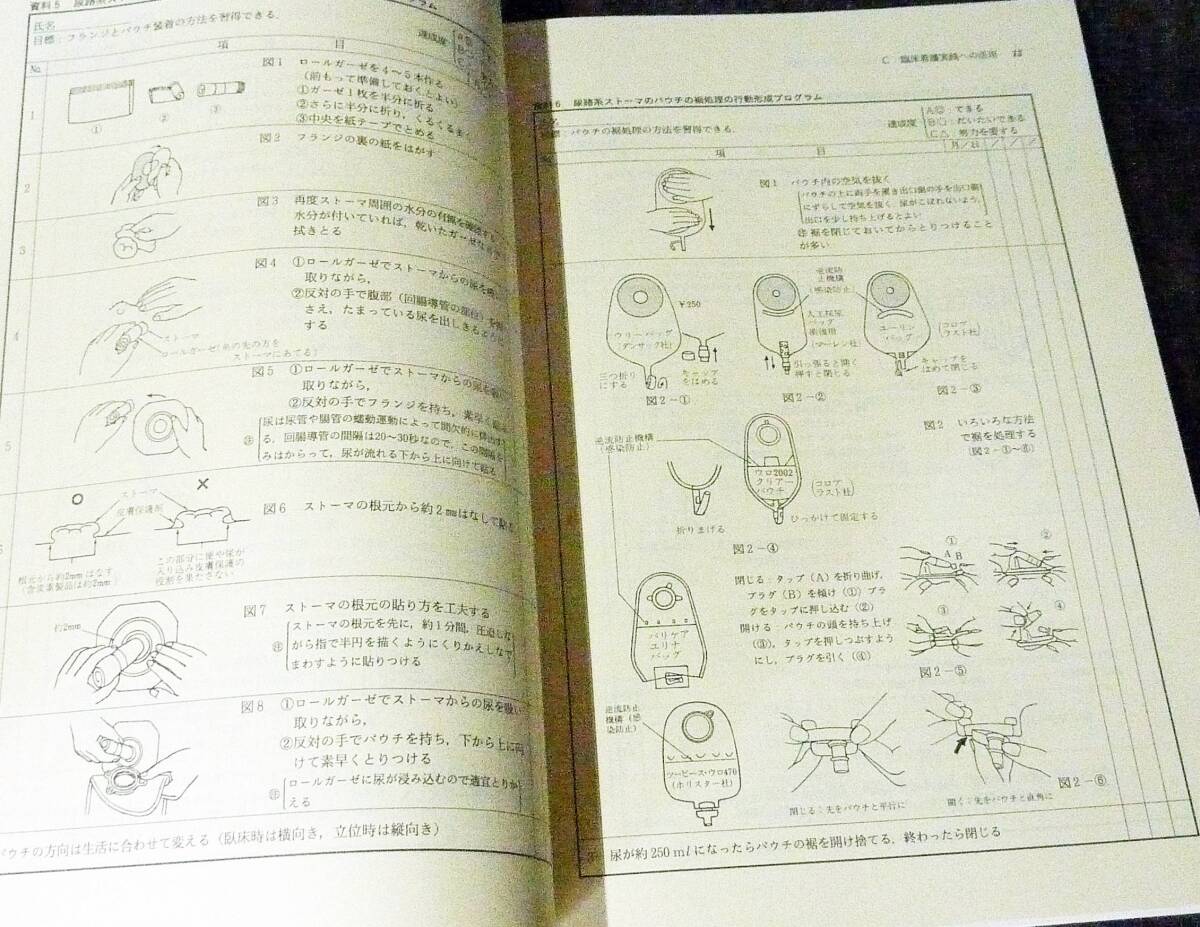 資料5 尿路系ス
プログラム
氏名
目標:フランジとパウチ装着の方法を習得できる.
達成度
A◎
B○
C
No.
項 目
1
①
②
③
図1 ロールガーゼを4〜5本作る
(前もって準備しておくとよい)
①ガーゼ1枚を半分に折る
②さらに半分に折り,くるくるまく
③中央を紙テープでとめる
2
図2 フランジの裏の紙をはがす
3
図3 再度ストーマ周囲の水分の有無を確認する.
水分が付いていれば,乾いたガーゼ
拭きとる
4
図4 ①ロールガーゼでストーマからの尿を吸い
取りながら,
②反対の手で腹部(回腸導管の部位)を
さえ,たまっている尿を出しきる
する
ストーマ
ロールガーゼ(糸の先の方を
ストーマにあてる)
5
図5 ①ロールガーゼでストーマからの尿を
取りながら,
②反対の手でフランジを持ち,素早く
注
尿は尿管や腸管の蠕動運動によって間欠的に排出
る.回腸導管の間隔は20〜30秒なので,この間隔を
みはからって,尿が流れる下から上に向けて貼る
○
ストーマ
×
皮膚保護剤
図6 ストーマの根元から約2mmはなして貼る
根元から約2mmはなす
(含皮素製品は約2mm)
この部分に便や尿が
入り込み皮膚保護の
役割を果たさない
約2mm
図7 ストーマの根元の貼り方を工夫する
注
ストーマの根元を先に,約1分間,圧迫しな
がら指で半円を描くようにくりかえしなで
まわすように貼りつける
図8 ①ロールガーゼでストーマからの尿を吸い
取りながら,
②反対の手でパウチを持ち,下から上に向
けて素早くとりつける
注
ロールガーゼに尿が浸み込むので適宜とりか
える
パウチの方向は生活に合わせて変える(臥床時は横向き,立位時は縦向き)
C 臨床看護実践への活用
資料6 尿路系ストーマのパウチの裾処理の行動形成プログラム
目標:パウチの裾処理の方法を習得できる.
達成度
A◎:できる
B○:だいたいできる
C△:努力を要する
項 目
月/日 / / /
図1 パウチ内の空気を抜く
パウチの上に両手を置き出口側の手を出口側
にずらして空気を抜く.尿がこぼれないよう,
出口を少し持ち上げるとよい
注 裾を閉じておいてからとりつけること
が多い.
¥250
ウリーバッグ
(ダンサック社)
三つ折り
にする
キャップ
をはめる
図2-①
逆流防
止機構
(感染防止)
人工採尿
バッグ
術後用
(マーレン社)
引っ張ると開く
押すと閉じる
図2-②
ユーリン
バッグ
(コロプ
ラスト社)
キャップを
はめて閉じる
図2-③
図2 いろいろな方法
で裾を処理する
(図2-①〜⑥)
逆流防止機構
(感染防止)
ウロ2002
クリアー
パウチ
(コロプ
ラスト社)
折りまげる
ひっかけて固定する
図2-④
バリケア
ユリナ
バッグ
閉じる:タップ(A)を折り曲げ,
プラグ(B)を傾け(①)プラ
グをタップに押し込む(②)
開ける:パウチの頭を持ち上げ
(③),タップを押しつぶすよう
にし,プラグを引く(④)
①
A
B
②
③
④
図2-⑤
逆流防止
機構(感
染防止)
ツーピース・ウロ470
(ホリスター社)
閉じる:先をパウチと平行に
開く:先をパウチと直角に
図2-⑥
尿が約250mlになったらパウチの裾を開け捨てる.終わったら閉じる